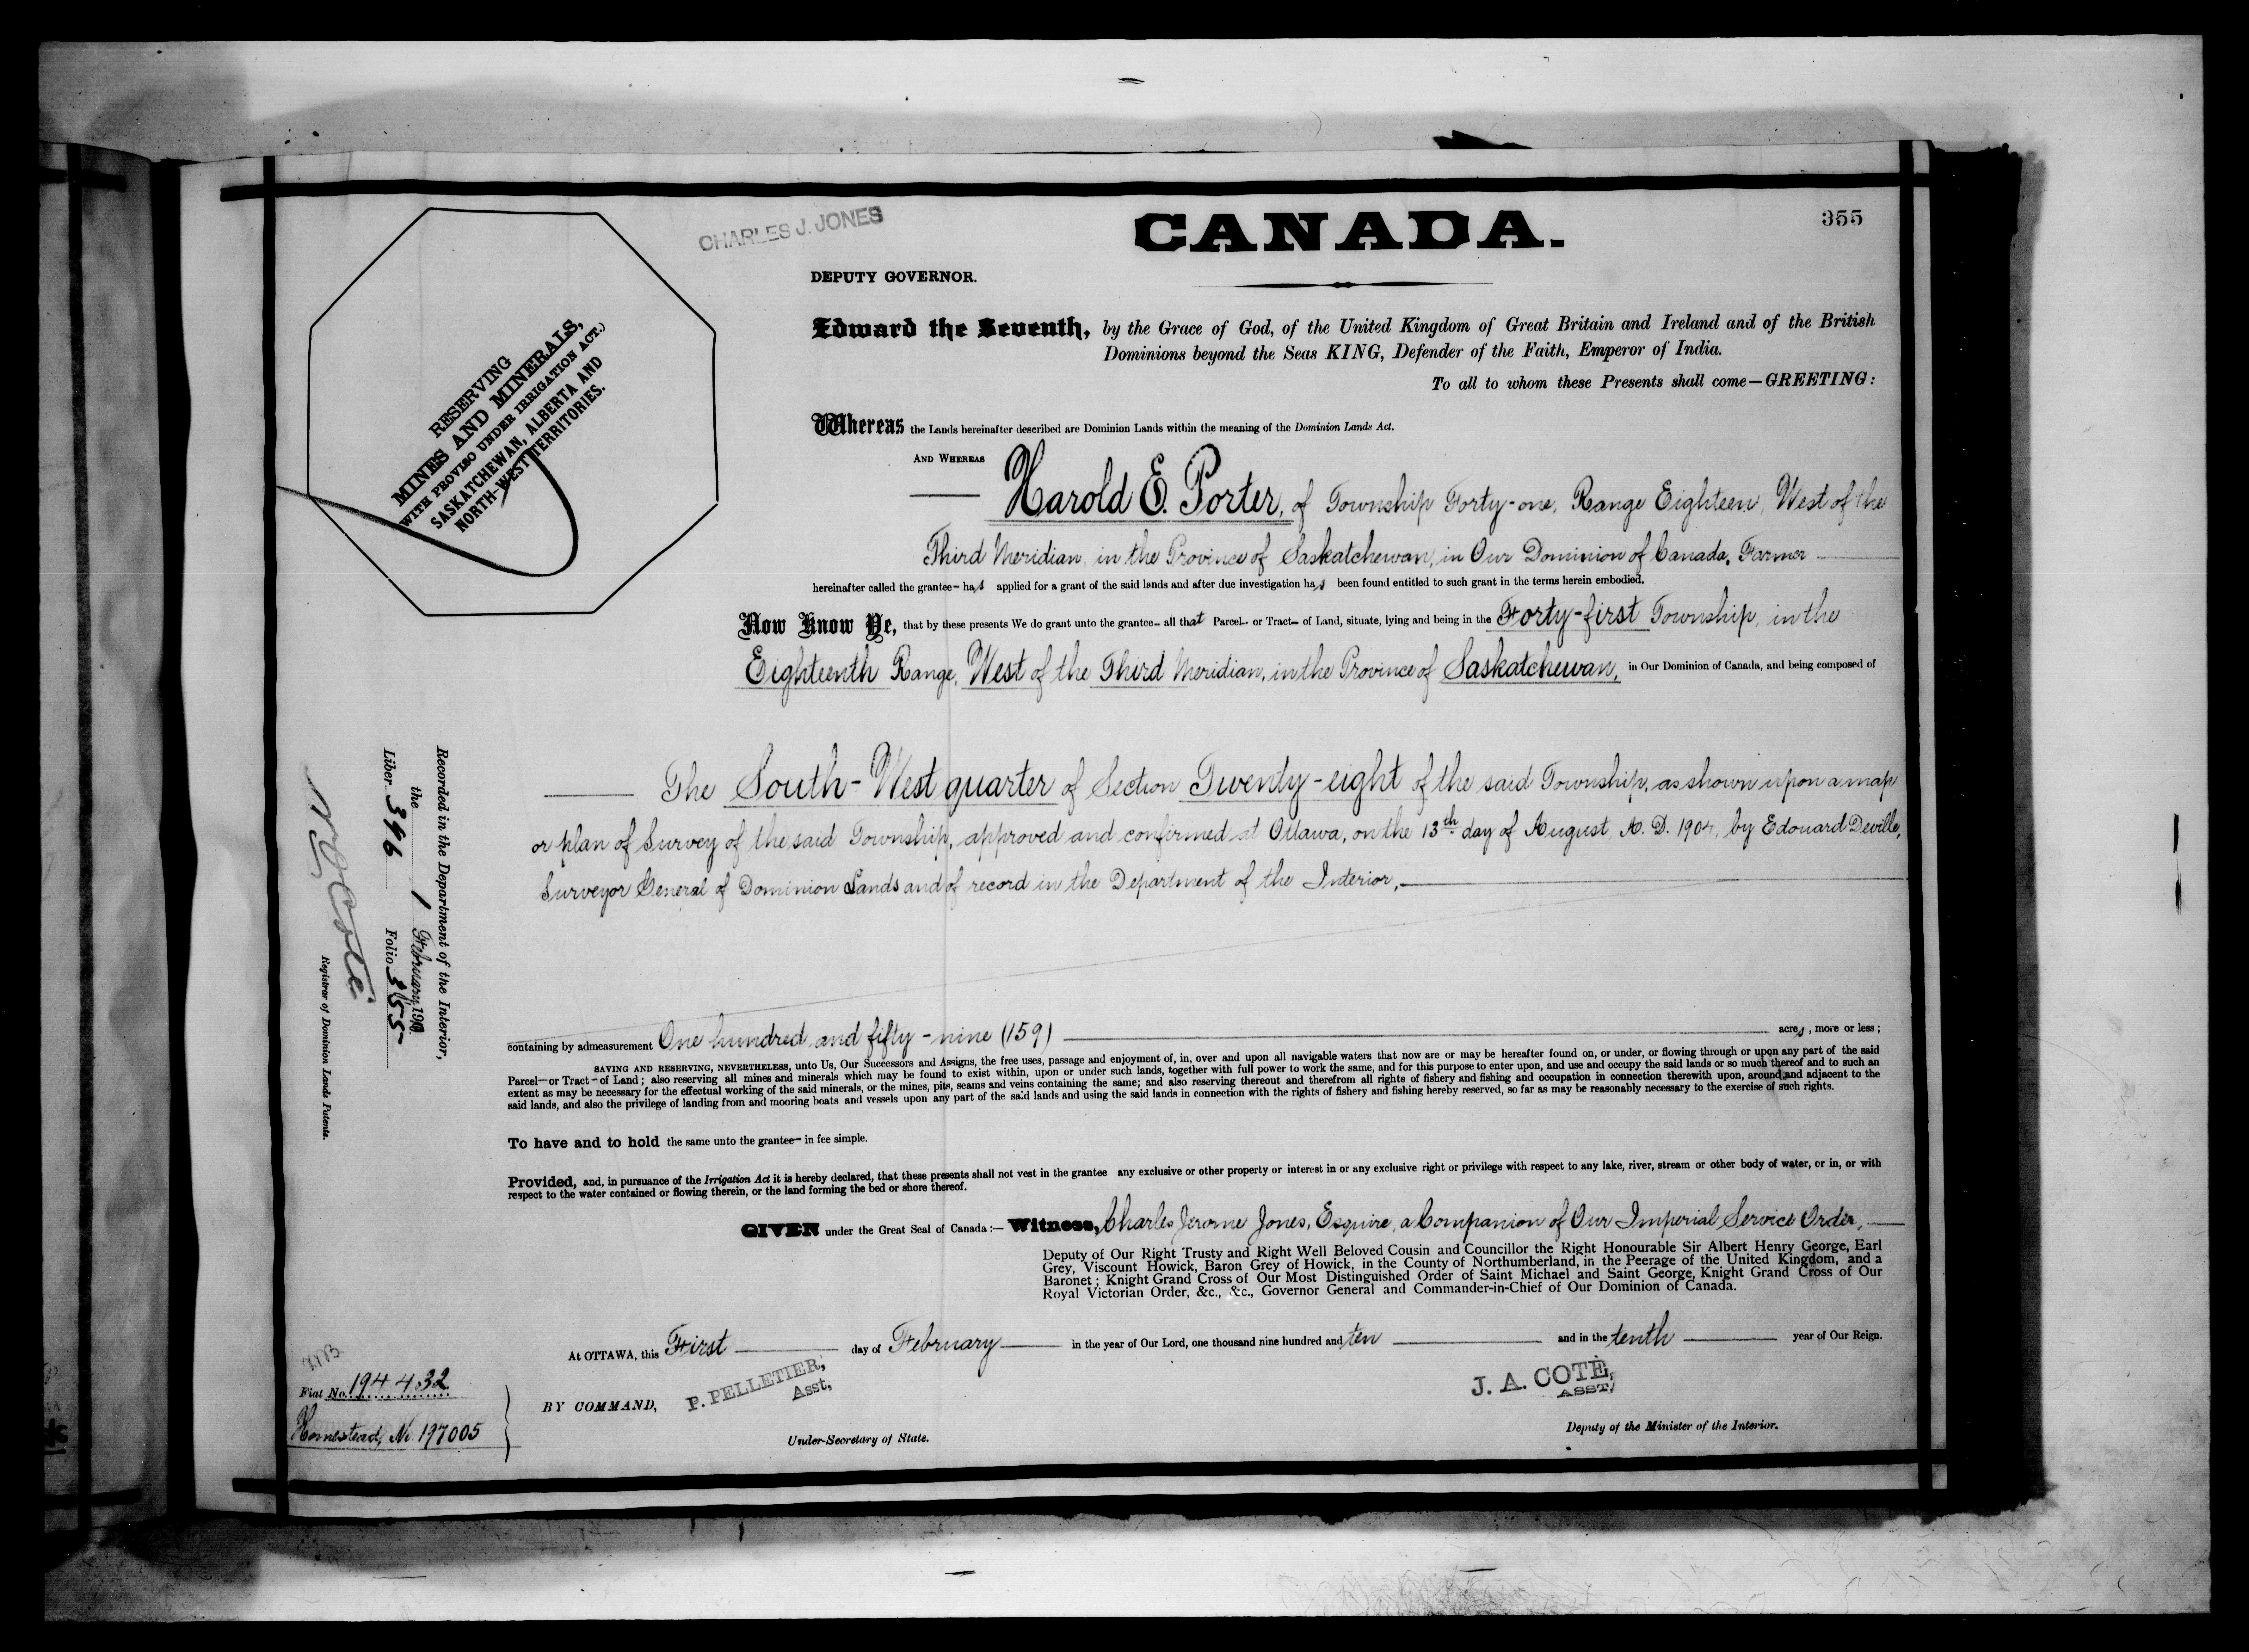 355
CHARLES J. JONES
CANADA.
DEPUTY GOVERNOR.
Edward the Seventh, by the Grace of God, of the United Kingdom of Great Britain and Ireland and of the British
Dominions beyond the Seas KING, Defender of the Faith, Emperor of India.
To all to whom these Presents shall come—GREETING:
RESERVING
MINES AND MINERALS,
WITH PROVISO UNDER IRRIGATION ACT.)
SASKATCHEWAN, ALBERTA AND
NORTH-WEST TERRITORIES.
Whereas the Lands hereinafter described are Dominion Lands within the meaning of the Dominion Lands Act.
AND WHEREAS
Harold E. Porter, of Township Forty-one, Range Eighteen, West of the
Third Meridian, in the Province of Saskatchewan, in Our Dominion of Canada, Farmer
hereinafter called the grantee– has applied for a grant of the said lands and after due investigation has been found entitled to such grant in the terms herein embodied.
Now Know Ye, that by these presents We do grant unto the grantee– all that Parcel– or Tract– of Land, situate, lying and being in the Forty-first Township, in the
Eighteenth Range, West of the Third Meridian, in the Province of Saskatchewan, in Our Dominion of Canada, and being composed of
The South-West quarter of Section Twenty-eight of the said Township, as shown upon a map
or plan of Survey of the said Township, approved and confirmed at Ottawa, on the 13th day of August, A. D. 1904, by Edouard Deville,
Surveyor General of Dominion Lands and of record in the Department of the Interior,
Recorded in the Department of the Interior,
the 1 February 1910
Liber 396 Folio 355
Registrar of Dominion Lands Patents.
containing by admeasurement One hundred and fifty-nine (159) acres, more or less;
SAVING AND RESERVING, NEVERTHELESS, unto Us, Our Successors and Assigns, the free uses, passage and enjoyment of, in, over and upon all navigable waters that now are or may be hereafter found on, or under, or flowing through or upon any part of the said
Parcel– or Tract– of Land; also reserving all mines and minerals which may be found to exist within, upon or under such lands, together with full power to work the same, and for this purpose to enter upon, and use and occupy the said lands or so much thereof and to such an
extent as may be necessary for the effectual working of the said minerals, or the mines, pits, seams and veins containing the same; and also reserving thereout and therefrom all rights of fishery and fishing and occupation in connection therewith upon, around and adjacent to the
said lands, and also the privilege of landing from and mooring boats and vessels upon any part of the said lands and using the said lands in connection with the rights of fishery and fishing hereby reserved, so far as may be reasonably necessary to the exercise of such rights.
To have and to hold the same unto the grantee– in fee simple.
Provided, and, in pursuance of the Irrigation Act it is hereby declared, that these presents shall not vest in the grantee any exclusive or other property or interest in or any exclusive right or privilege with respect to any lake, river, stream or other body of water, or in, or with
respect to the water contained or flowing therein, or the land forming the bed or shore thereof.
GIVEN under the Great Seal of Canada:— Witness, Charles Jerome Jones, Esquire, a Companion of Our Imperial Service Order,
Deputy of Our Right Trusty and Right Well Beloved Cousin and Councillor the Right Honourable Sir Albert Henry George, Earl
Grey, Viscount Howick, Baron Grey of Howick, in the County of Northumberland, in the Peerage of the United Kingdom, and a
Baronet; Knight Grand Cross of Our Most Distinguished Order of Saint Michael and Saint George, Knight Grand Cross of Our
Royal Victorian Order, &c., &c., Governor General and Commander-in-Chief of Our Dominion of Canada.
At OTTAWA, this First day of February in the year of Our Lord, one thousand nine hundred and ten and in the tenth year of Our Reign.
BY COMMAND,
P. PELLETIER,
Asst,
Under-Secretary of State.
J. A. COTÉ,
ASST,
Deputy of the Minister of the Interior.
Fiat No. 194432
Homestead, No. 197005